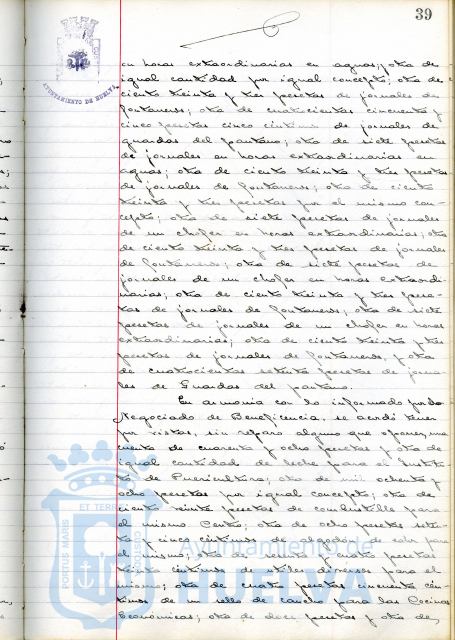 39
AYUNTAMIENTO DE HUELVA
en horas extraordinarias en aguas; otra de
igual cantidad por igual concepto; otra de
ciento treinta y tres pesetas de jornales de
fontaneros; otra de cuatrocientas cincuenta y
cinco pesetas cinco céntimos de jornales de
guardas del pantano; otra de siete pesetas
de jornales en horas extraordinarias en
aguas; otra de ciento treinta y tres pesetas
de jornales de fontaneros; otra de ciento
treinta y tres pesetas por el mismo con-
cepto; otra de siete pesetas de jornales
de un chofer en horas extraordinarias; otra
de ciento treinta y tres pesetas de jornales
de fontaneros; otra de siete pesetas de
jornales de un chofer en horas extraordi-
narias; otra de ciento treinta y tres pese-
tas de jornales de fontaneros; otra de siete
pesetas de jornales de un chofer en horas
extraordinarias; otra de ciento treinta y tres
pesetas de jornales de fontaneros, y otra
de cuatrocientas setenta pesetas de jorna-
les de Guardas del pantano.
En armonía con lo informado por
Negociado de Beneficencia, se acordó tener
por vistas, sin reparo alguno que oponer, una
cuenta de cuarenta y ocho pesetas y otra de
igual cantidad de leche para el Institu-
to de Puericultura; otra de mil ochenta y
ocho pesetas por igual concepto; otra de
ciento veinte pesetas de combustible para
el mismo Centro; otra de ocho pesetas seten-
ta y cinco céntimos de algodón de para
el mismo; otra de y cinco pesetas
treinta céntimos de útiles diversos para el
mismo; otra de cuatro pesetas cincuenta cén-
timos de un sello de caucho para las Cocinas
Económicas; otra de doce pesetas y otra de
PORTUS MARIS ET TERRE CUSTODIA
Ayuntamiento de
HUELVA